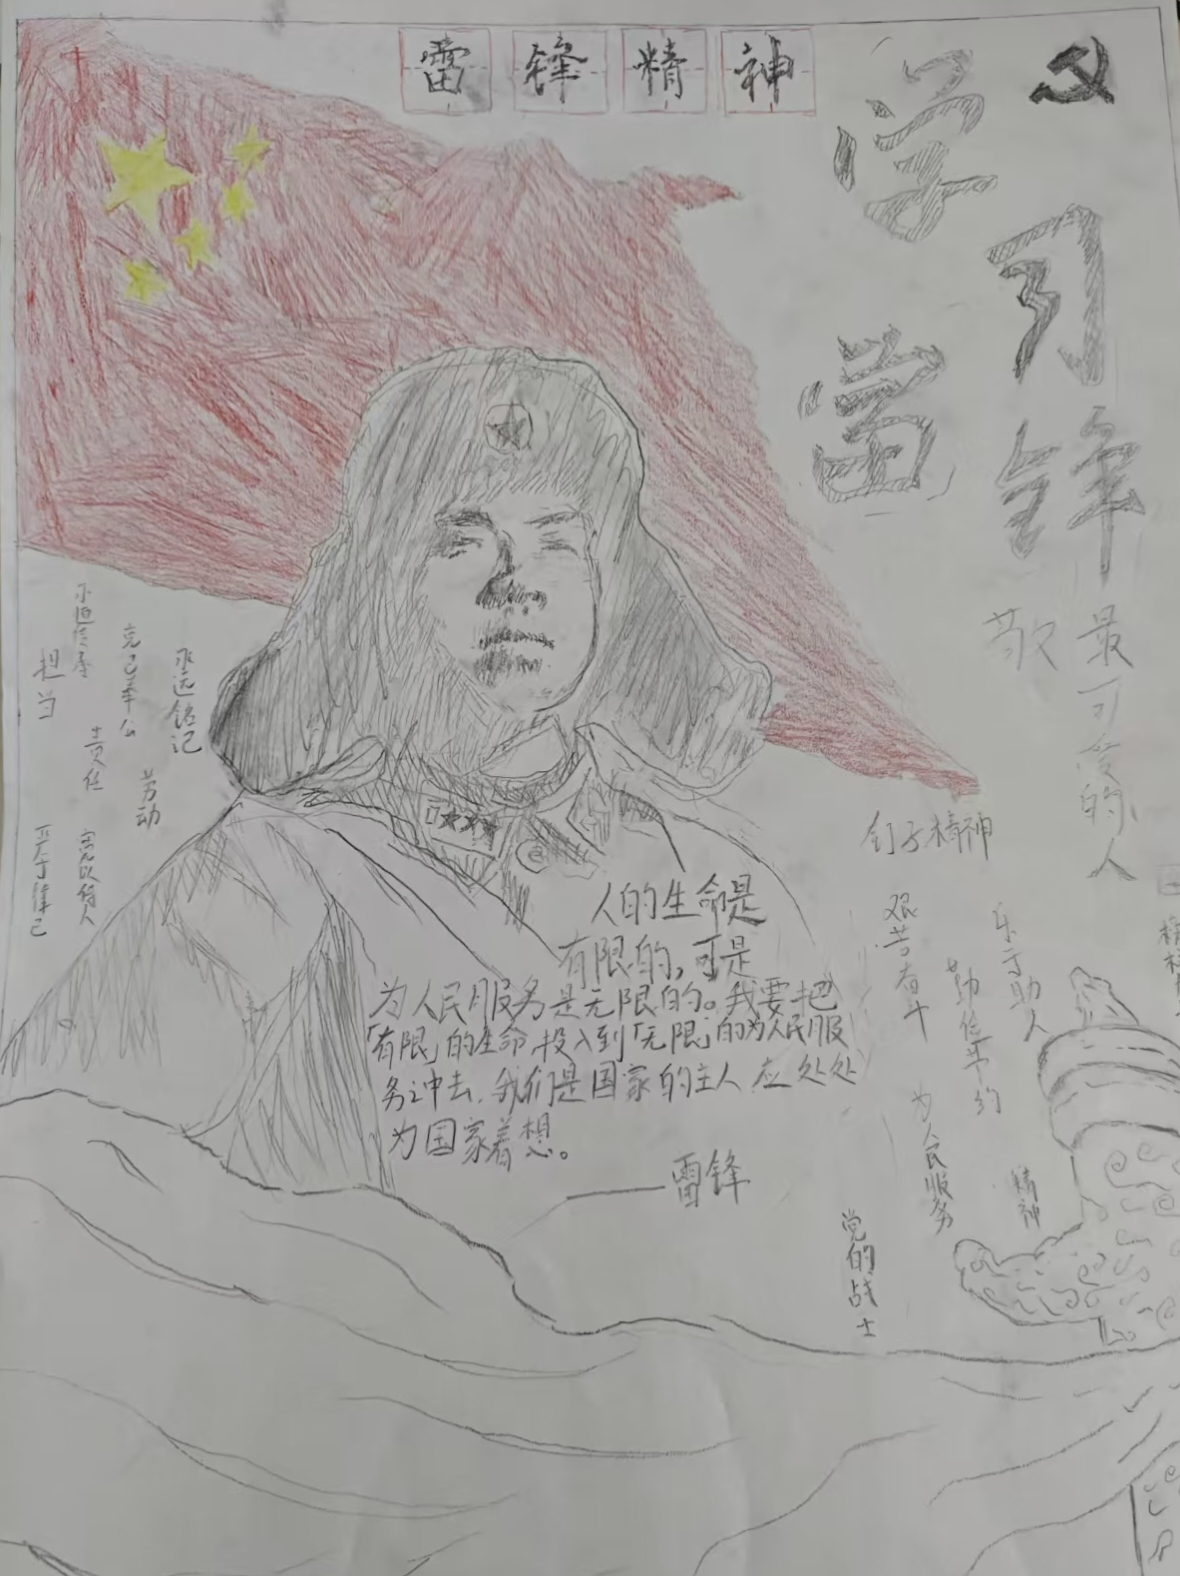 雷锋精神
学习
雷锋
敬最可爱的人
永远铭记
克己奉公
担当
责任
劳动
严于律己
宽以待人
钉子精神
艰苦奋斗
乐于助人
勤俭节约
为人民服务
精神
党的战士
人的生命是
有限的,可是
为人民服务是无限的。我要把
「有限」的生命,投入到「无限」的为人民服
务之中去,我们是国家的主人 应处处
为国家着想。
——雷锋